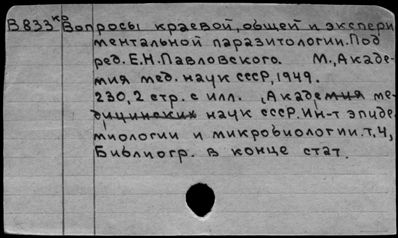 В833кр Вопросы краевой, общей и экспери
ментальной паразитологии. Под
ред. Е.Н. Павловского. М., Акаде-
мия мед. наук СССР, 1949.
230, 2 стр. с илл. , Академия ме-
дицинских наук СССР. Ин-т эпиде-
миологии и микробиологии. т. 4,
Библиогр. в конце стат.